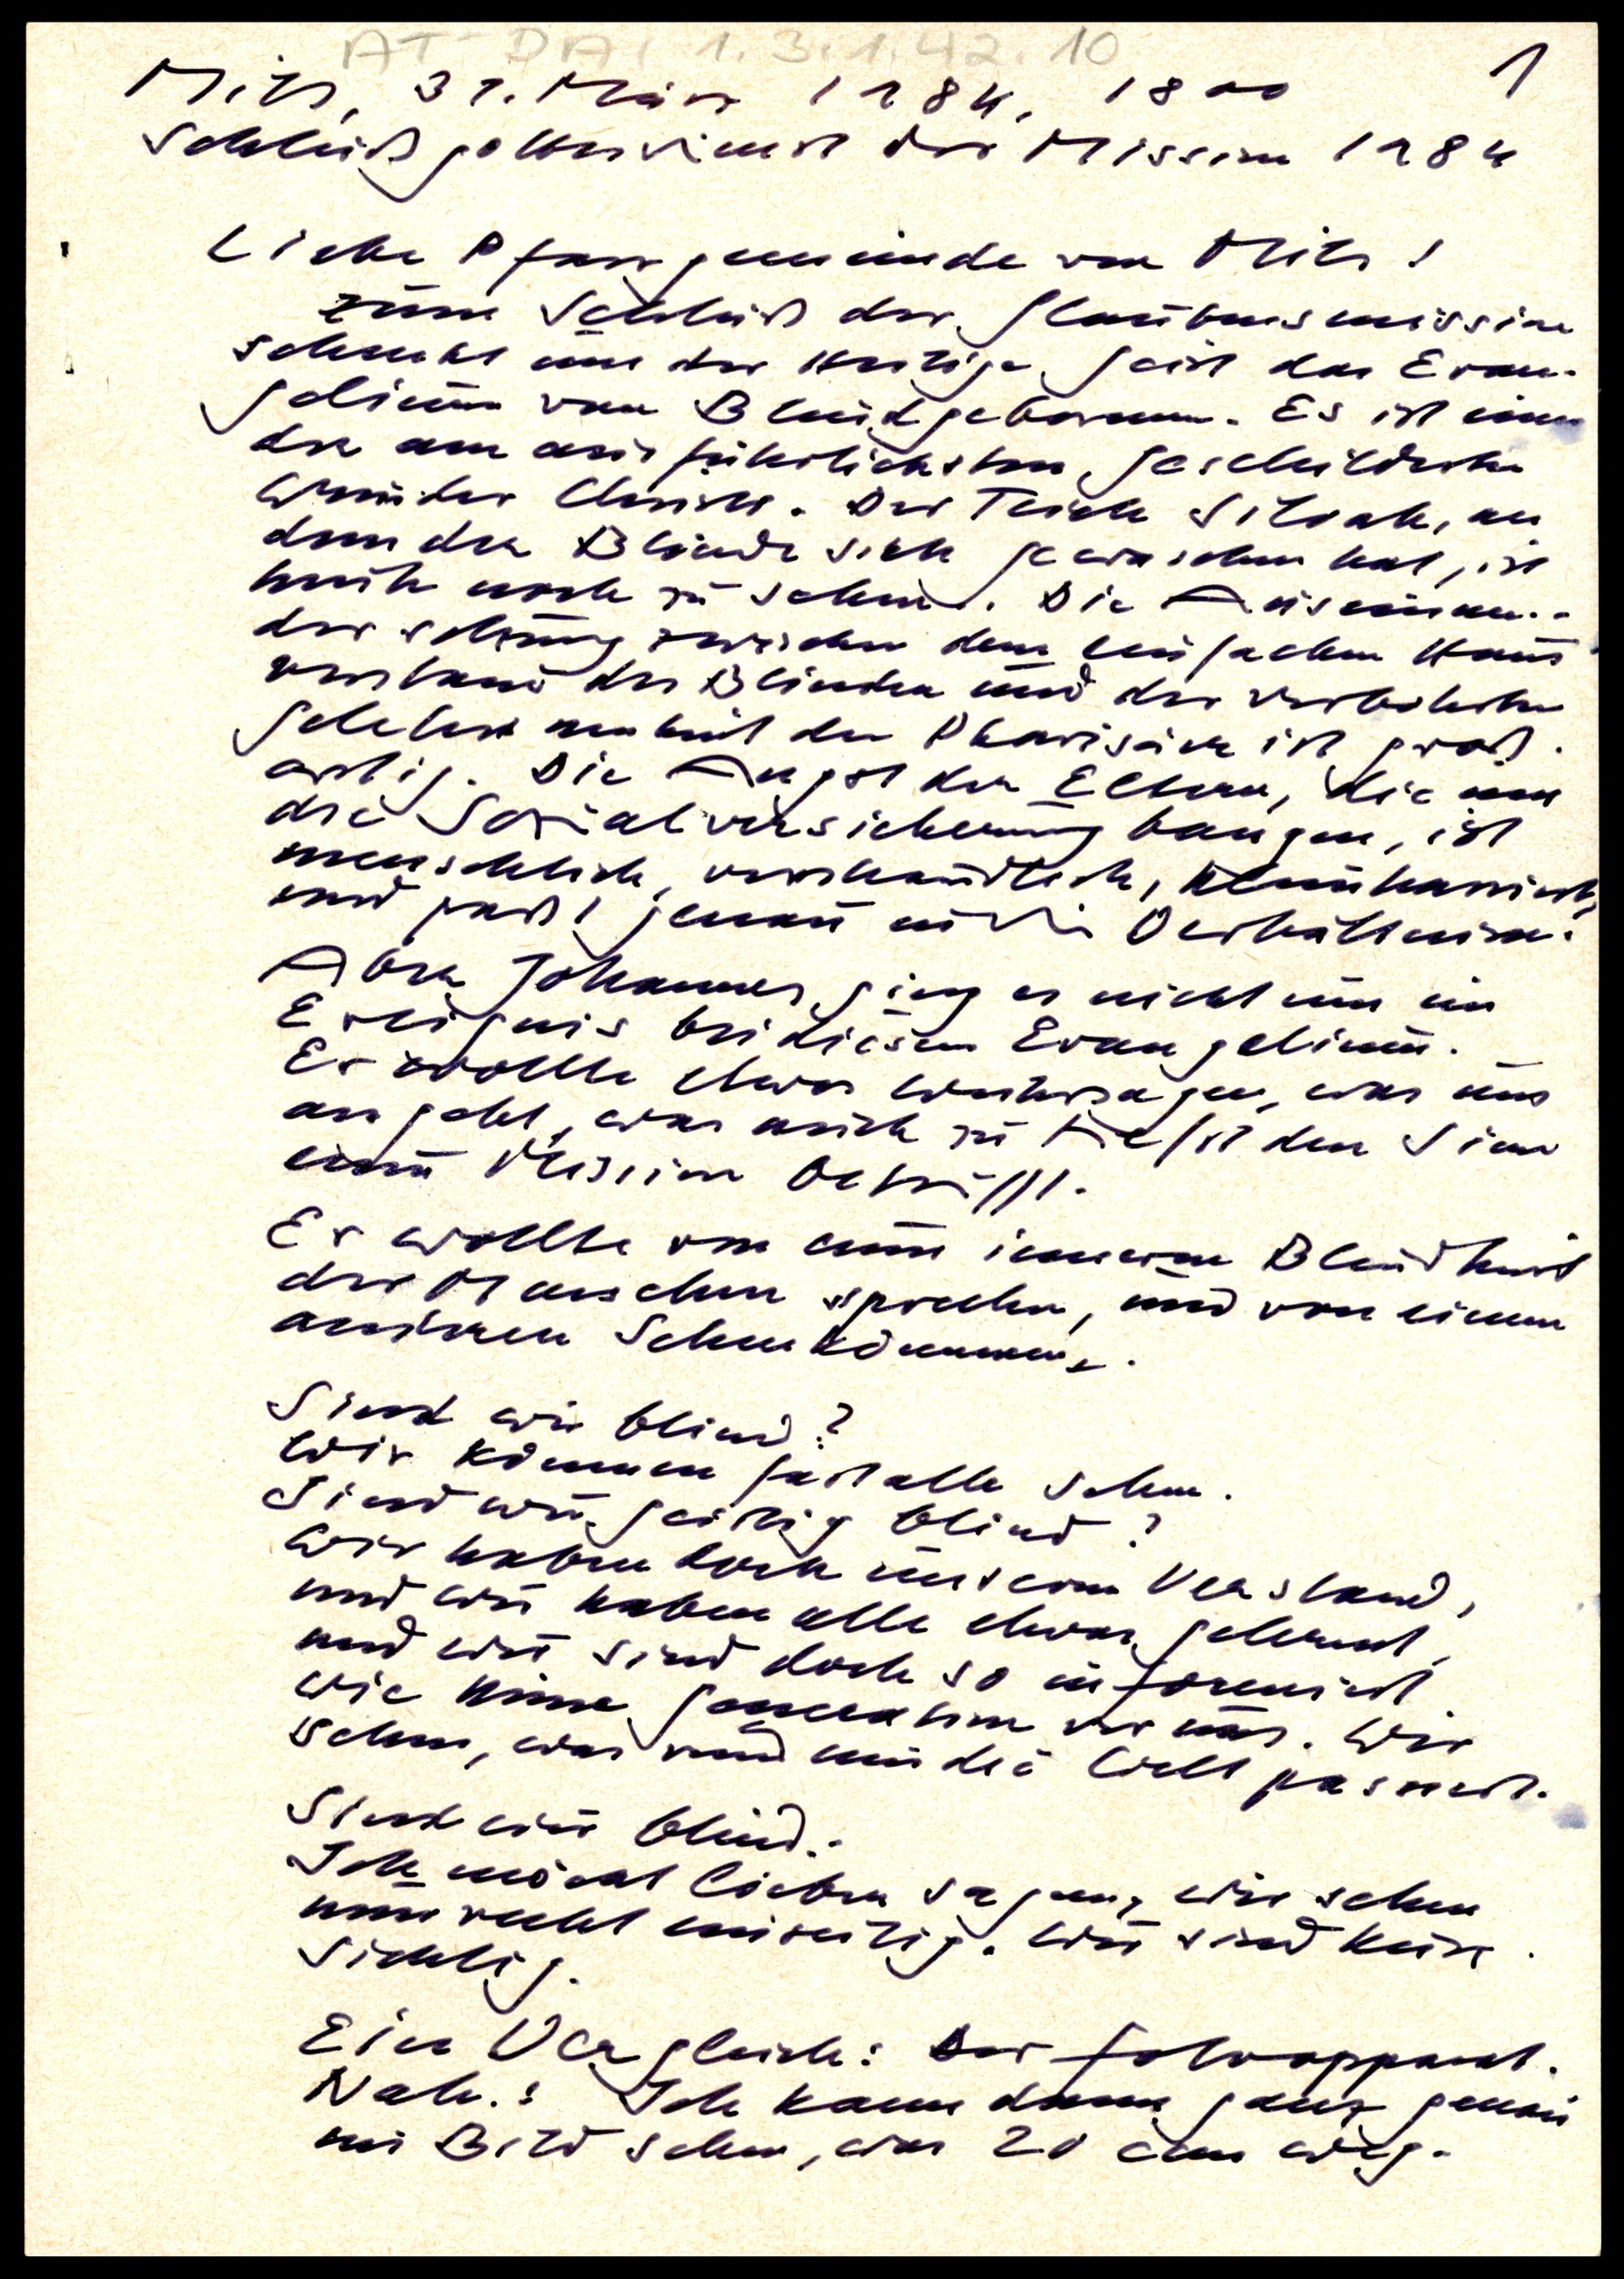 AT-DAI 1.3.1.42.10
1
Mils, 31. März 1984, 18 00
Schlußgottesdienst der Mission 1984
Liebe Pfarrgemeinde von Mils!
zum Schluß der Glaubensmission
schenkt uns der Heilige Geist das Evan-
gelium vom Blindgeborenen. Es ist eines
der am ausführlichsten geschilderten
Wunder Christi. Der Teich Siloah, an
dem der Blinde sich gewaschen hat, ist
heute noch zu sehen. Die Auseinan-
dersetzung zwischen dem einfachen Haus
verstand des Blinden und der verbohrten
Gelehrtenheit der Pharisäer ist groß-
artig. Die Angst der Eltern, die um
die Sozialversicherung bangen, ist
menschlich, verständlich,
und paßt genau in die Verhältnisse.
Aber Johannes ging es nicht um ein
Ereignis bei diesem Evangelium.
Er wollte etwas weitersagen, was uns
angeht, was auch zu tiefst den Sinn
einer Mission betrifft.
Er wollte von einer inneren Blindheit
der Menschen sprechen, und von einem
anderen Sehenkönnen.
Sind wir blind?
Wir können fast alle sehen.
Sind wir geistig blind?
Wir haben doch unseren Verstand,
und wir haben alle etwas gelernt,
und wir sind doch so informiert
wie keine Generation vor uns. Wir
sehen, was rund um die Welt passiert.
Sind wir blind.
Ich möcht lieber sagen, wir sehen
nur recht einseitig. Wir sind kurz-
sichtig.
Ein Vergleich: Der Fotoapparat.
Nah.: Ich kann dann ganz genau
im Bild sehen, was 20 cm weg.